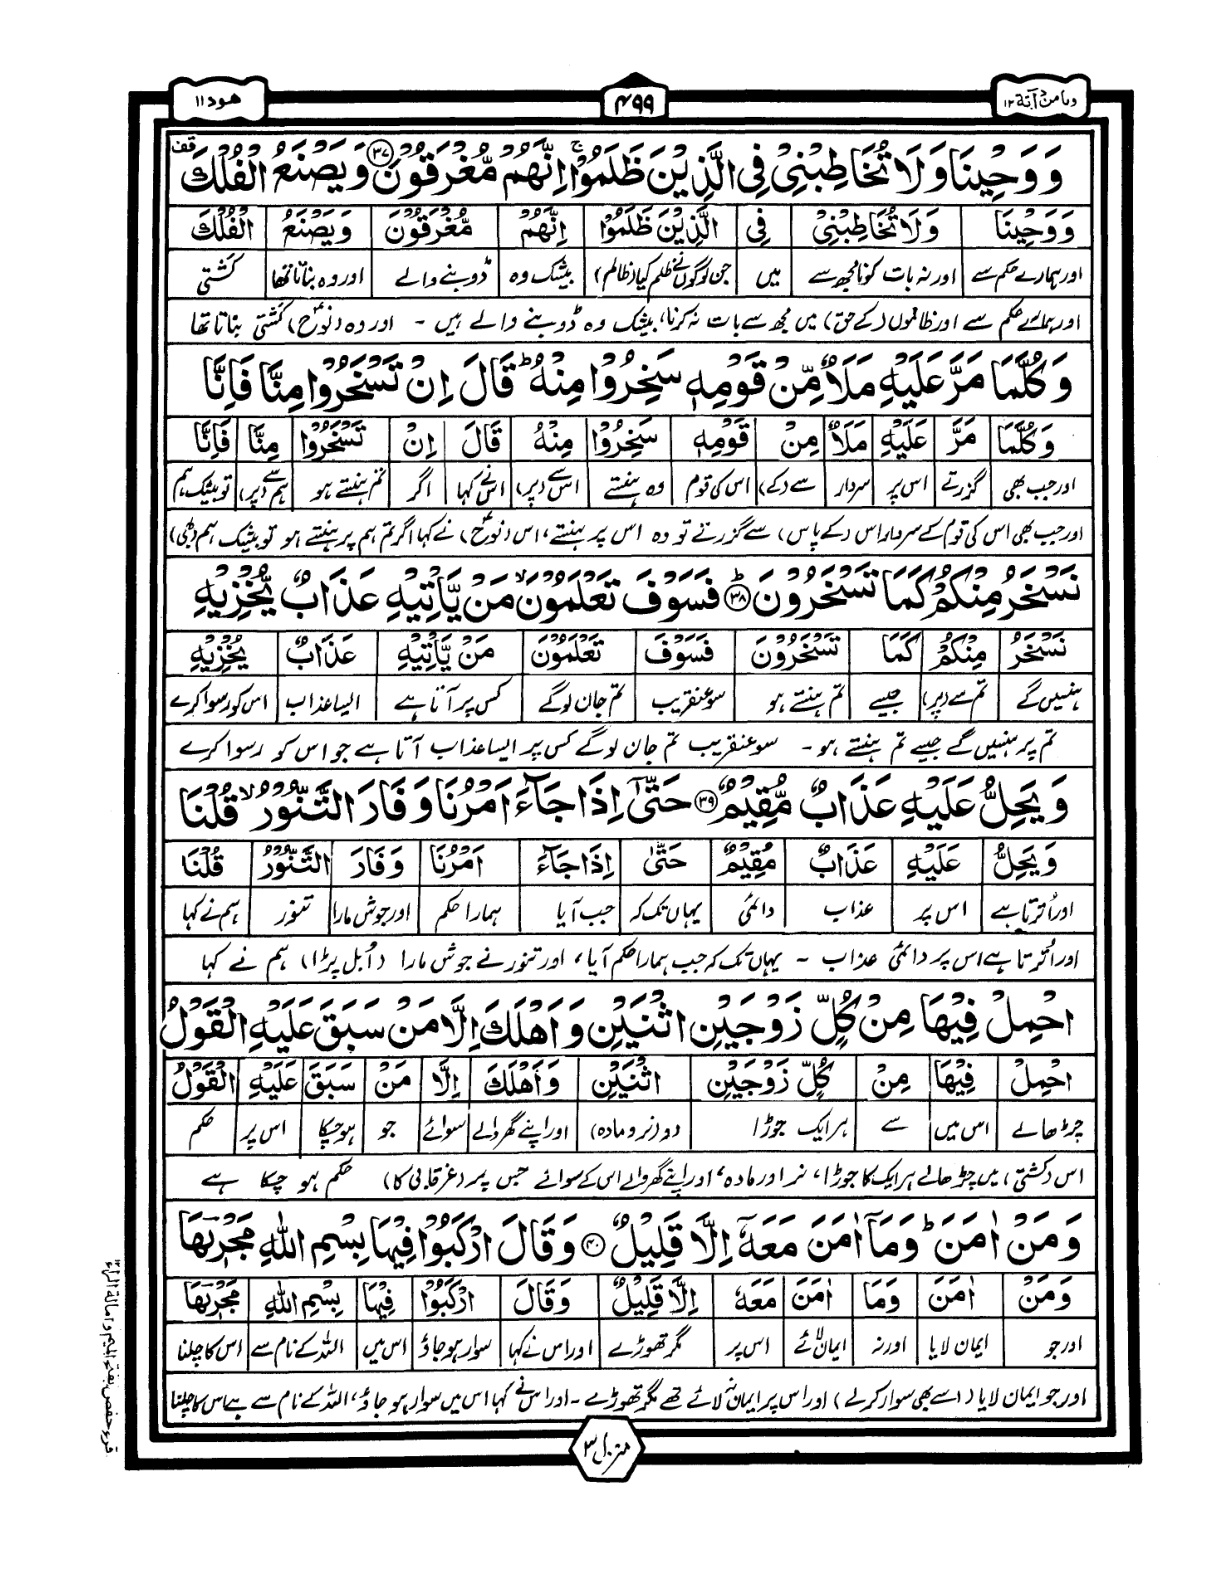 وما من دآبة ١٢
٤٩٩
هود ١١
وَوَحْيِنَا وَلَا تُخَاطِبْنِيْ فِي الَّذِيْنَ ظَلَمُوْا ۚ اِنَّهُمْ مُّغْرَقُوْنَ ﴿۳۷﴾ وَيَصْنَعُ الْفُلْكَ ۫ قف
وَوَحْيِنَا وَلَا تُخَاطِبْنِيْ فِي الَّذِيْنَ ظَلَمُوْا اِنَّهُمْ مُّغْرَقُوْنَ وَيَصْنَعُ الْفُلْكَ
اور ہمارے حکم سے اور نہ بات کرنا مجھ سے میں جن لوگوں نے ظلم کیا (ظالم) بیشک وہ ڈوبنے والے اور وہ بناتا تھا کشتی
اور ہمارے حکم سے اور ظالموں (کے حق) میں مجھ سے بات نہ کرنا، بیشک وہ ڈوبنے والے ہیں ۔ اور وہ (نوحؑ) کشتی بناتا تھا
وَكُلَّمَا مَرَّ عَلَيْهِ مَلَاٌ مِّنْ قَوْمِهٖ سَخِرُوْا مِنْهُ ؕ قَالَ اِنْ تَسْخَرُوْا مِنَّا فَاِنَّا
وَكُلَّمَا مَرَّ عَلَيْهِ مَلَاٌ مِنْ قَوْمِهٖ سَخِرُوْا مِنْهُ قَالَ اِنْ تَسْخَرُوْا مِنَّا فَاِنَّا
اور جب بھی گزرتے اس پر سردار سے (کے) اس کی قوم وہ ہنستے اس سے (پر) اس نے کہا اگر تم ہنستے ہو ہم سے (پر) تو بیشک ہم
اور جب بھی اس کی قوم کے سردار اس (کے پاس) سے گزرتے تو وہ اس پر ہنستے، اس (نوحؑ) نے کہا اگر تم ہم پر ہنستے ہو تو بیشک ہم (بھی)
نَسْخَرُ مِنْكُمْ كَمَا تَسْخَرُوْنَ ؕ﴿۳۸﴾ فَسَوْفَ تَعْلَمُوْنَ ۙ مَنْ يَّاْتِيْهِ عَذَابٌ يُّخْزِيْهِ
نَسْخَرُ مِنْكُمْ كَمَا تَسْخَرُوْنَ فَسَوْفَ تَعْلَمُوْنَ مَنْ يَّاْتِيْهِ عَذَابٌ يُخْزِيْهِ
ہنسیں گے تم سے (پر) جیسے تم ہنستے ہو سو عنقریب تم جان لوگے کس پر آتا ہے ایسا عذاب اس کو رسوا کرے
تم پر ہنسیں گے جیسے تم ہنستے ہو ۔ سو عنقریب تم جان لوگے کس پر ایسا عذاب آتا ہے جو اس کو رسوا کرے
وَيَحِلُّ عَلَيْهِ عَذَابٌ مُّقِيْمٌ ﴿۳۹﴾ حَتّٰۤى اِذَا جَآءَ اَمْرُنَا وَفَارَ التَّنُّوْرُ ۙ قُلْنَا
وَيَحِلُّ عَلَيْهِ عَذَابٌ مُقِيْمٌ حَتّٰى اِذَا جَآءَ اَمْرُنَا وَفَارَ التَّنُّوْرُ قُلْنَا
اور اُترتا ہے اس پر عذاب دائمی یہاں تک کہ جب آیا ہمارا حکم اور جوش مارا تنور ہم نے کہا
اور اُترتا ہے اس پر دائمی عذاب ۔ یہاں تک کہ جب ہمارا حکم آیا، اور تنور نے جوش مارا (اُبل پڑا) ہم نے کہا
احْمِلْ فِيْهَا مِنْ كُلٍّ زَوْجَيْنِ اثْنَيْنِ وَاَهْلَكَ اِلَّا مَنْ سَبَقَ عَلَيْهِ الْقَوْلُ
احْمِلْ فِيْهَا مِنْ كُلٍّ زَوْجَيْنِ اثْنَيْنِ وَاَهْلَكَ اِلَّا مَنْ سَبَقَ عَلَيْهِ الْقَوْلُ
چڑھالے اس میں سے ہر ایک جوڑا دو (نر و مادہ) اور اپنے گھر والے سوائے جو ہوچکا اس پر حکم
اس (کشتی) میں چڑھالے ہر ایک کا جوڑا، نر اور مادہ، اور اپنے گھر والے اس کے سوائے جس پر (غرقابی کا) حکم ہو چکا ہے
وَمَنْ اٰمَنَ ؕ وَمَاۤ اٰمَنَ مَعَهٗۤ اِلَّا قَلِيْلٌ ﴿۴۰﴾ وَقَالَ ارْكَبُوْا فِيْهَا بِسْمِ اللّٰهِ مَجْرٖىهَا
وَمَنْ اٰمَنَ وَمَا اٰمَنَ مَعَهٗ اِلَّا قَلِيْلٌ وَقَالَ ارْكَبُوْا فِيْهَا بِسْمِ اللّٰهِ مَجْرٖىهَا
اور جو ایمان لایا اور نہ ایمان لائے اس پر مگر تھوڑے اور اس نے کہا سوار ہو جاؤ اس میں اللہ کے نام سے اس کا چلنا
اور جو ایمان لایا (اسے بھی سوار کرلے) اور اس پر ایمان نہ لائے تھے مگر تھوڑے ۔ اور اس نے کہا اس میں سوار ہو جاؤ، اللہ کے نام سے ہے اس کا چلنا
منزل ٣
قرء حفص بفتح الميم وامالة الراء